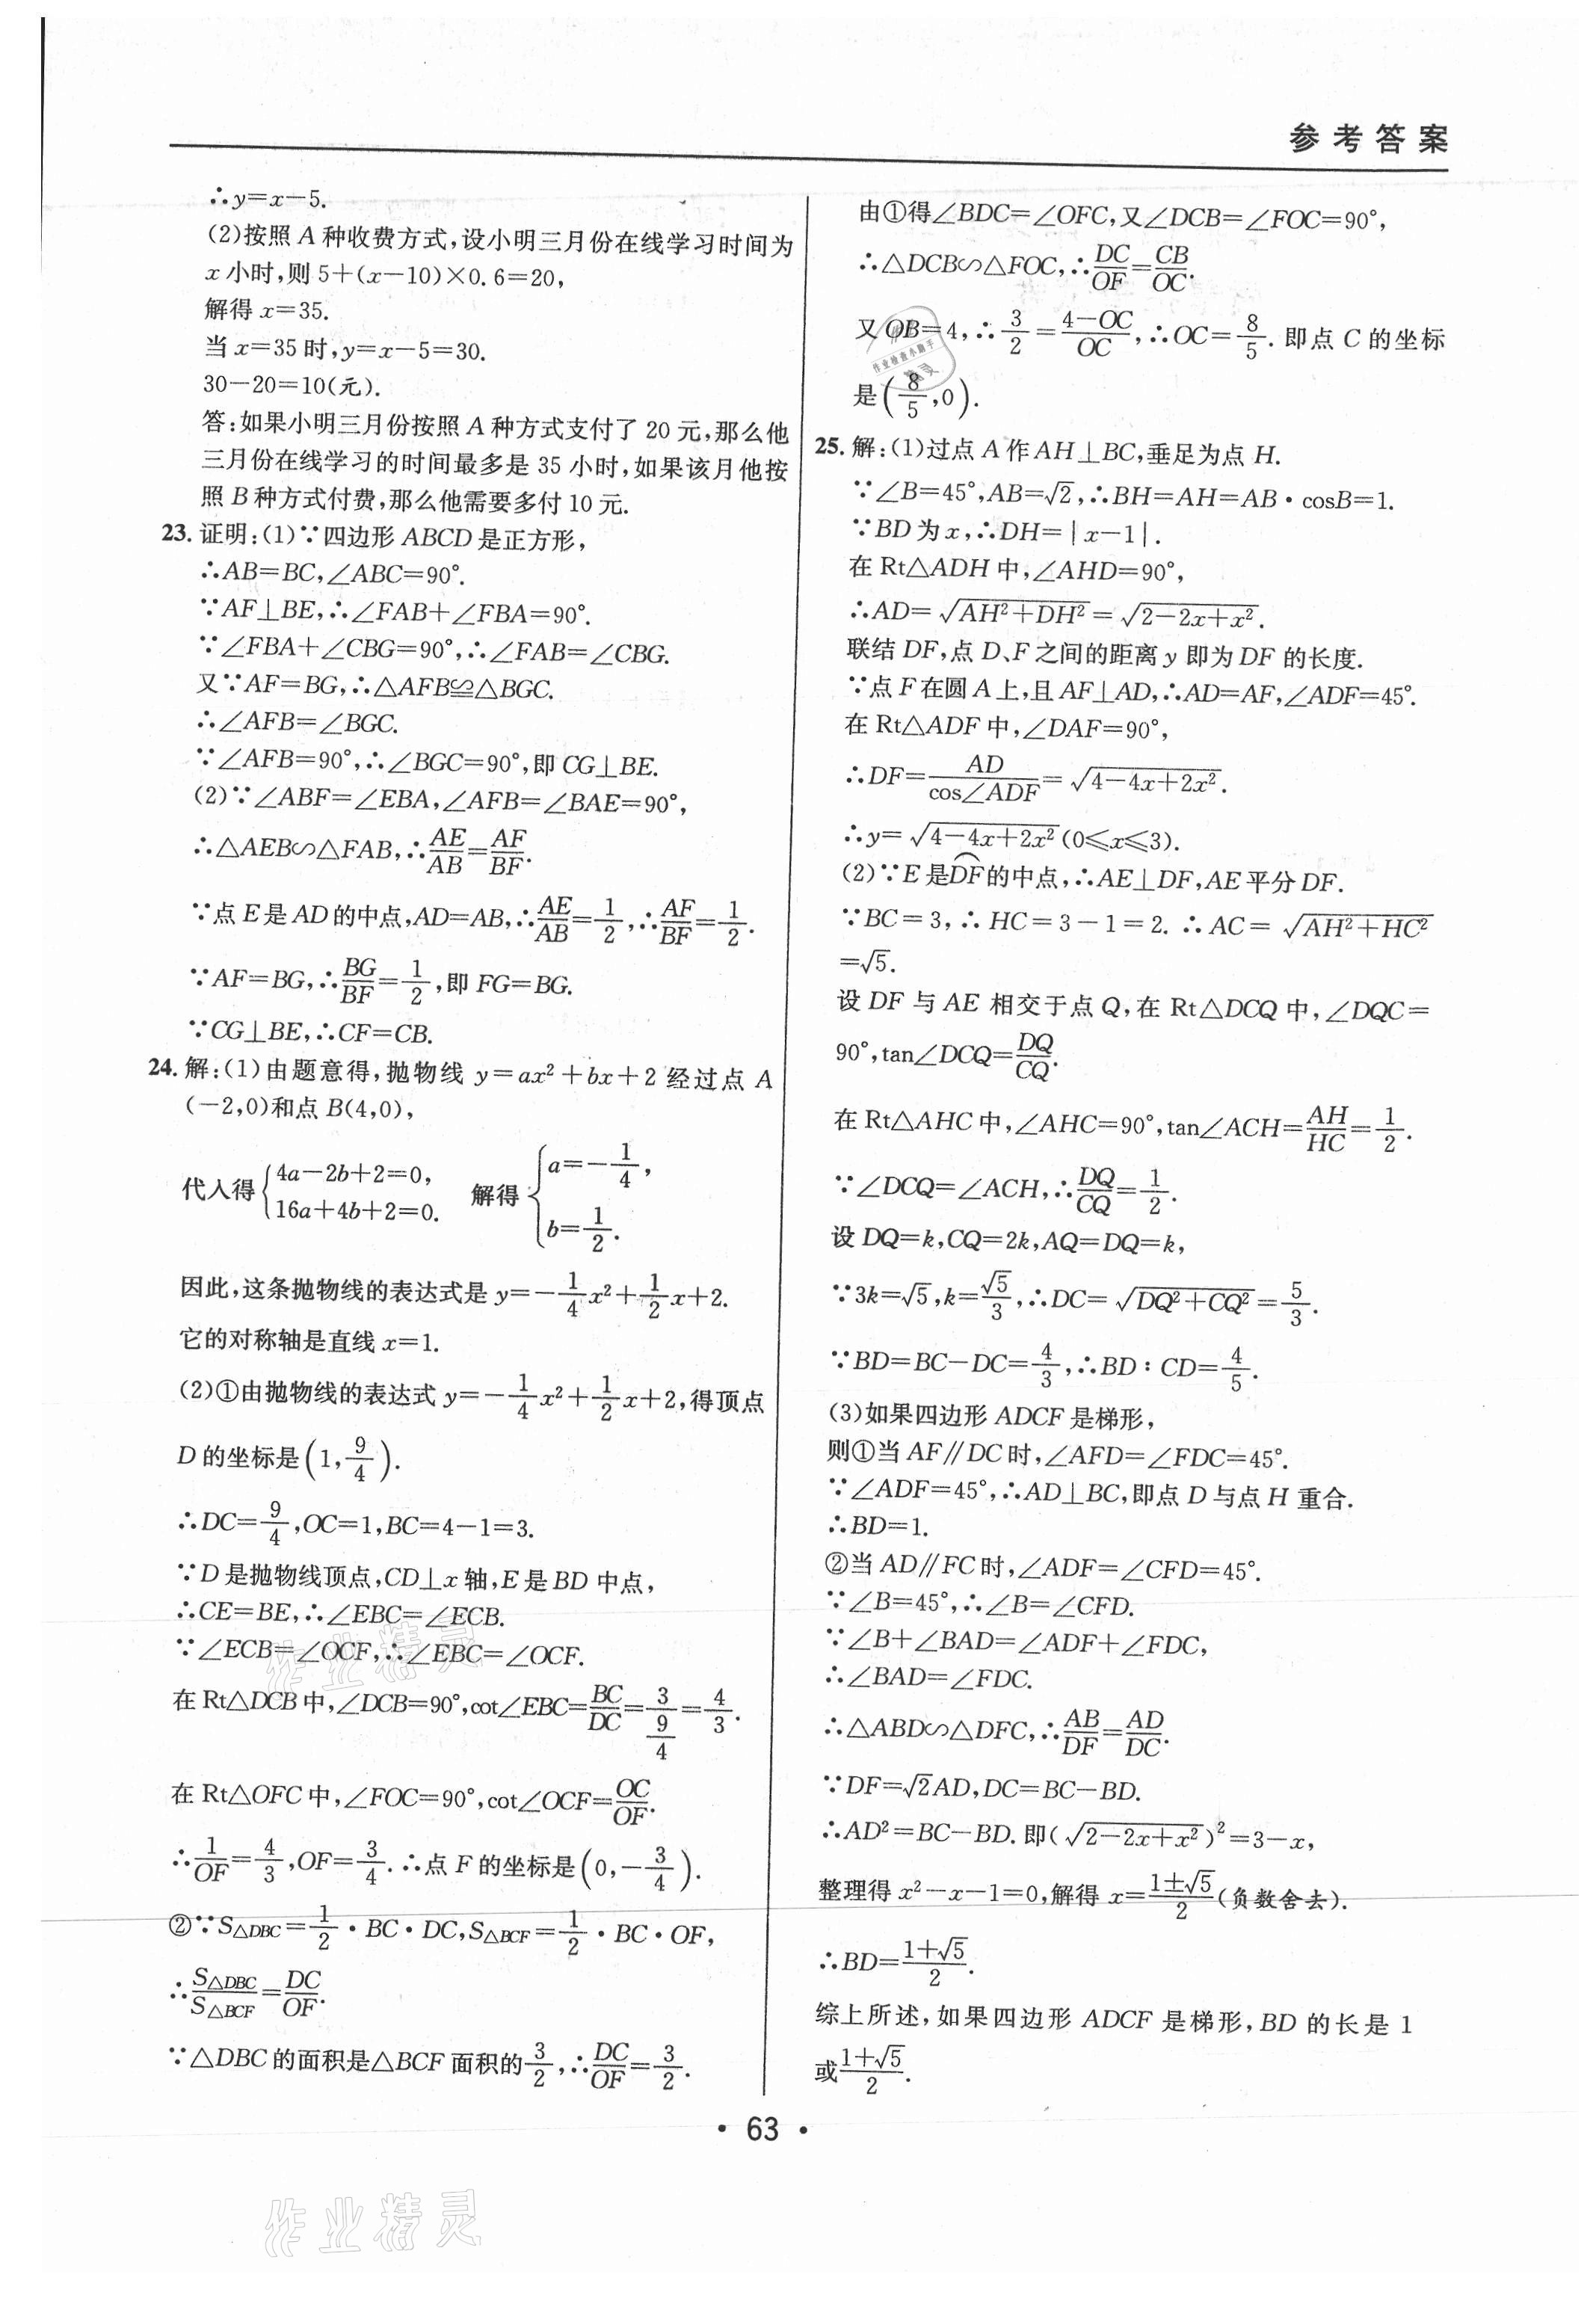 参考答案
∴y=x-5.
(2)按照 A 种收费方式,设小明三月份在线学习时间为
x 小时,则 5+(x-10)×0.6=20,
解得 x=35.
当 x=35 时,y=x-5=30.
30-20=10(元).
答:如果小明三月份按照 A 种方式支付了 20 元,那么他
三月份在线学习的时间最多是 35 小时,如果该月他按
照 B 种方式付费,那么他需要多付 10 元.
23. 证明:(1)∵四边形 ABCD 是正方形,
∴AB=BC,∠ABC=90°.
∵AF⊥BE,∴∠FAB+∠FBA=90°.
∵∠FBA+∠CBG=90°,∴∠FAB=∠CBG.
又∵AF=BG,∴△AFB≌△BGC.
∴∠AFB=∠BGC.
∵∠AFB=90°,∴∠BGC=90°,即 CG⊥BE.
(2)∵∠ABF=∠EBA,∠AFB=∠BAE=90°,
∴△AEB∽△FAB,∴AE/AB=AF/BF.
∵点 E 是 AD 的中点,AD=AB,∴AE/AB=1/2,∴AF/BF=1/2.
∵AF=BG,∴BG/BF=1/2,即 FG=BG.
∵CG⊥BE,∴CF=CB.
24. 解:(1)由题意得,抛物线 y=ax²+bx+2 经过点 A
(-2,0)和点 B(4,0),
代入得{4a-2b+2=0, 16a+4b+2=0. 解得{a=-1/4, b=1/2.
因此,这条抛物线的表达式是 y=-1/4x²+1/2x+2.
它的对称轴是直线 x=1.
(2)①由抛物线的表达式 y=-1/4x²+1/2x+2,得顶点
D 的坐标是(1,9/4).
∴DC=9/4,OC=1,BC=4-1=3.
∵D 是抛物线顶点,CD⊥x 轴,E 是 BD 中点,
∴CE=BE,∴∠EBC=∠ECB.
∵∠ECB=∠OCF,∴∠EBC=∠OCF.
在 Rt△DCB 中,∠DCB=90°,cot∠EBC=BC/DC=3/(9/4)=4/3.
在 Rt△OFC 中,∠FOC=90°,cot∠OCF=OC/OF.
∴1/OF=4/3,OF=3/4.∴点 F 的坐标是(0,-3/4).
②∵S△DBC=1/2·BC·DC,S△BCF=1/2·BC·OF,
∴S△DBC/S△BCF=DC/OF.
∵△DBC 的面积是△BCF 面积的3/2,∴DC/OF=3/2.
由①得∠BDC=∠OFC,又∠DCB=∠FOC=90°,
∴△DCB∽△FOC,∴DC/OF=CB/OC.
又 OB=4,∴3/2=(4-OC)/OC,∴OC=8/5.即点 C 的坐标
是(8/5,0).
25. 解:(1)过点 A 作 AH⊥BC,垂足为点 H.
∵∠B=45°,AB=√2,∴BH=AH=AB·cosB=1.
∵BD 为 x,∴DH=|x-1|.
在 Rt△ADH 中,∠AHD=90°,
∴AD=√(AH²+DH²)=√(2-2x+x²).
联结 DF,点 D、F 之间的距离 y 即为 DF 的长度.
∵点 F 在圆 A 上,且 AF⊥AD,∴AD=AF,∠ADF=45°.
在 Rt△ADF 中,∠DAF=90°,
∴DF=AD/cos∠ADF=√(4-4x+2x²).
∴y=√(4-4x+2x²)(0≤x≤3).
(2)∵E 是⌒DF的中点,∴AE⊥DF,AE 平分 DF.
∵BC=3,∴HC=3-1=2.∴AC=√(AH²+HC²)
=√5.
设 DF 与 AE 相交于点 Q,在 Rt△DCQ 中,∠DQC=
90°,tan∠DCQ=DQ/CQ.
在 Rt△AHC 中,∠AHC=90°,tan∠ACH=AH/HC=1/2.
∵∠DCQ=∠ACH,∴DQ/CQ=1/2.
设 DQ=k,CQ=2k,AQ=DQ=k,
∵3k=√5,k=√5/3,∴DC=√(DQ²+CQ²)=5/3.
∵BD=BC-DC=4/3,∴BD:CD=4/5.
(3)如果四边形 ADCF 是梯形,
则①当 AF∥DC 时,∠AFD=∠FDC=45°.
∵∠ADF=45°,∴AD⊥BC,即点 D 与点 H 重合.
∴BD=1.
②当 AD∥FC 时,∠ADF=∠CFD=45°.
∵∠B=45°,∴∠B=∠CFD.
∵∠B+∠BAD=∠ADF+∠FDC,
∴∠BAD=∠FDC.
∴△ABD∽△DFC,∴AB/DF=AD/DC.
∵DF=√2AD,DC=BC-BD.
∴AD²=BC-BD.即(√(2-2x+x²))²=3-x,
整理得 x²-x-1=0,解得 x=(1±√5)/2(负数舍去).
∴BD=(1+√5)/2.
综上所述,如果四边形 ADCF 是梯形,BD 的长是 1
或(1+√5)/2.
·63·
作业精灵
作业精灵
作业检查小助手